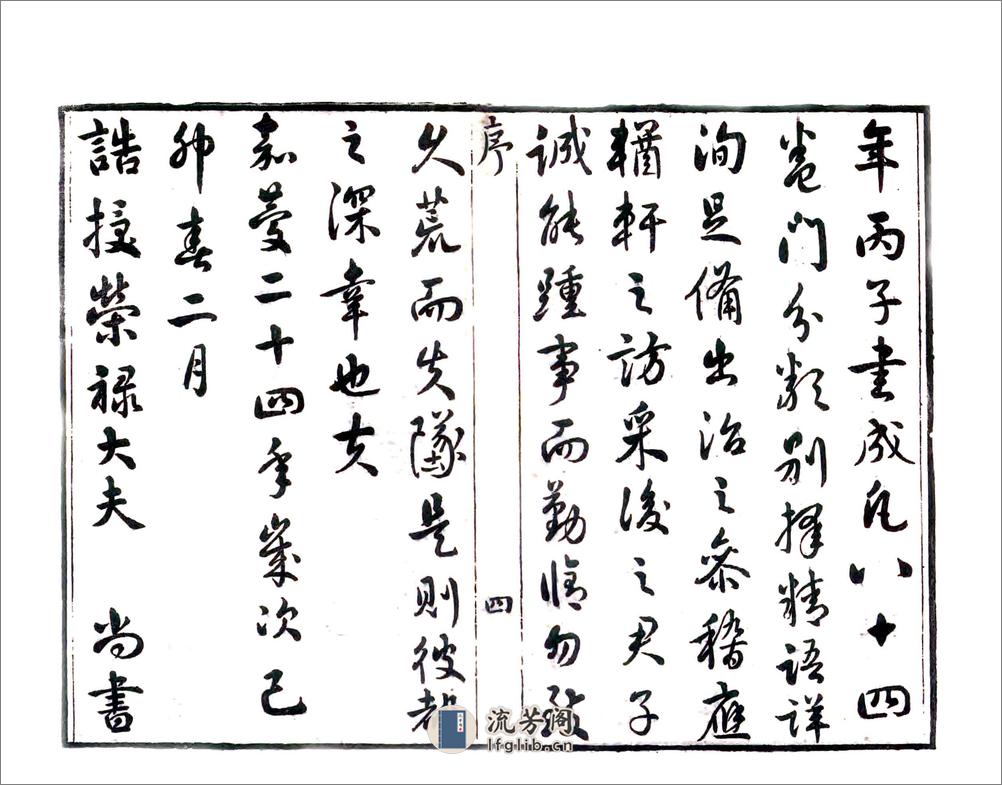 年丙子書成凡八十四
卷門分類別擇精語詳
洵足備出治之參稽應
輶軒之訪采後之君子
誠能踵事而勤脩勿致
序
四
久荒而失墜是則彼都
之深幸也夫
嘉慶二十四年歲次己
卯春二月
誥授榮祿大夫 尚書
流芳阁
lfglib.cn